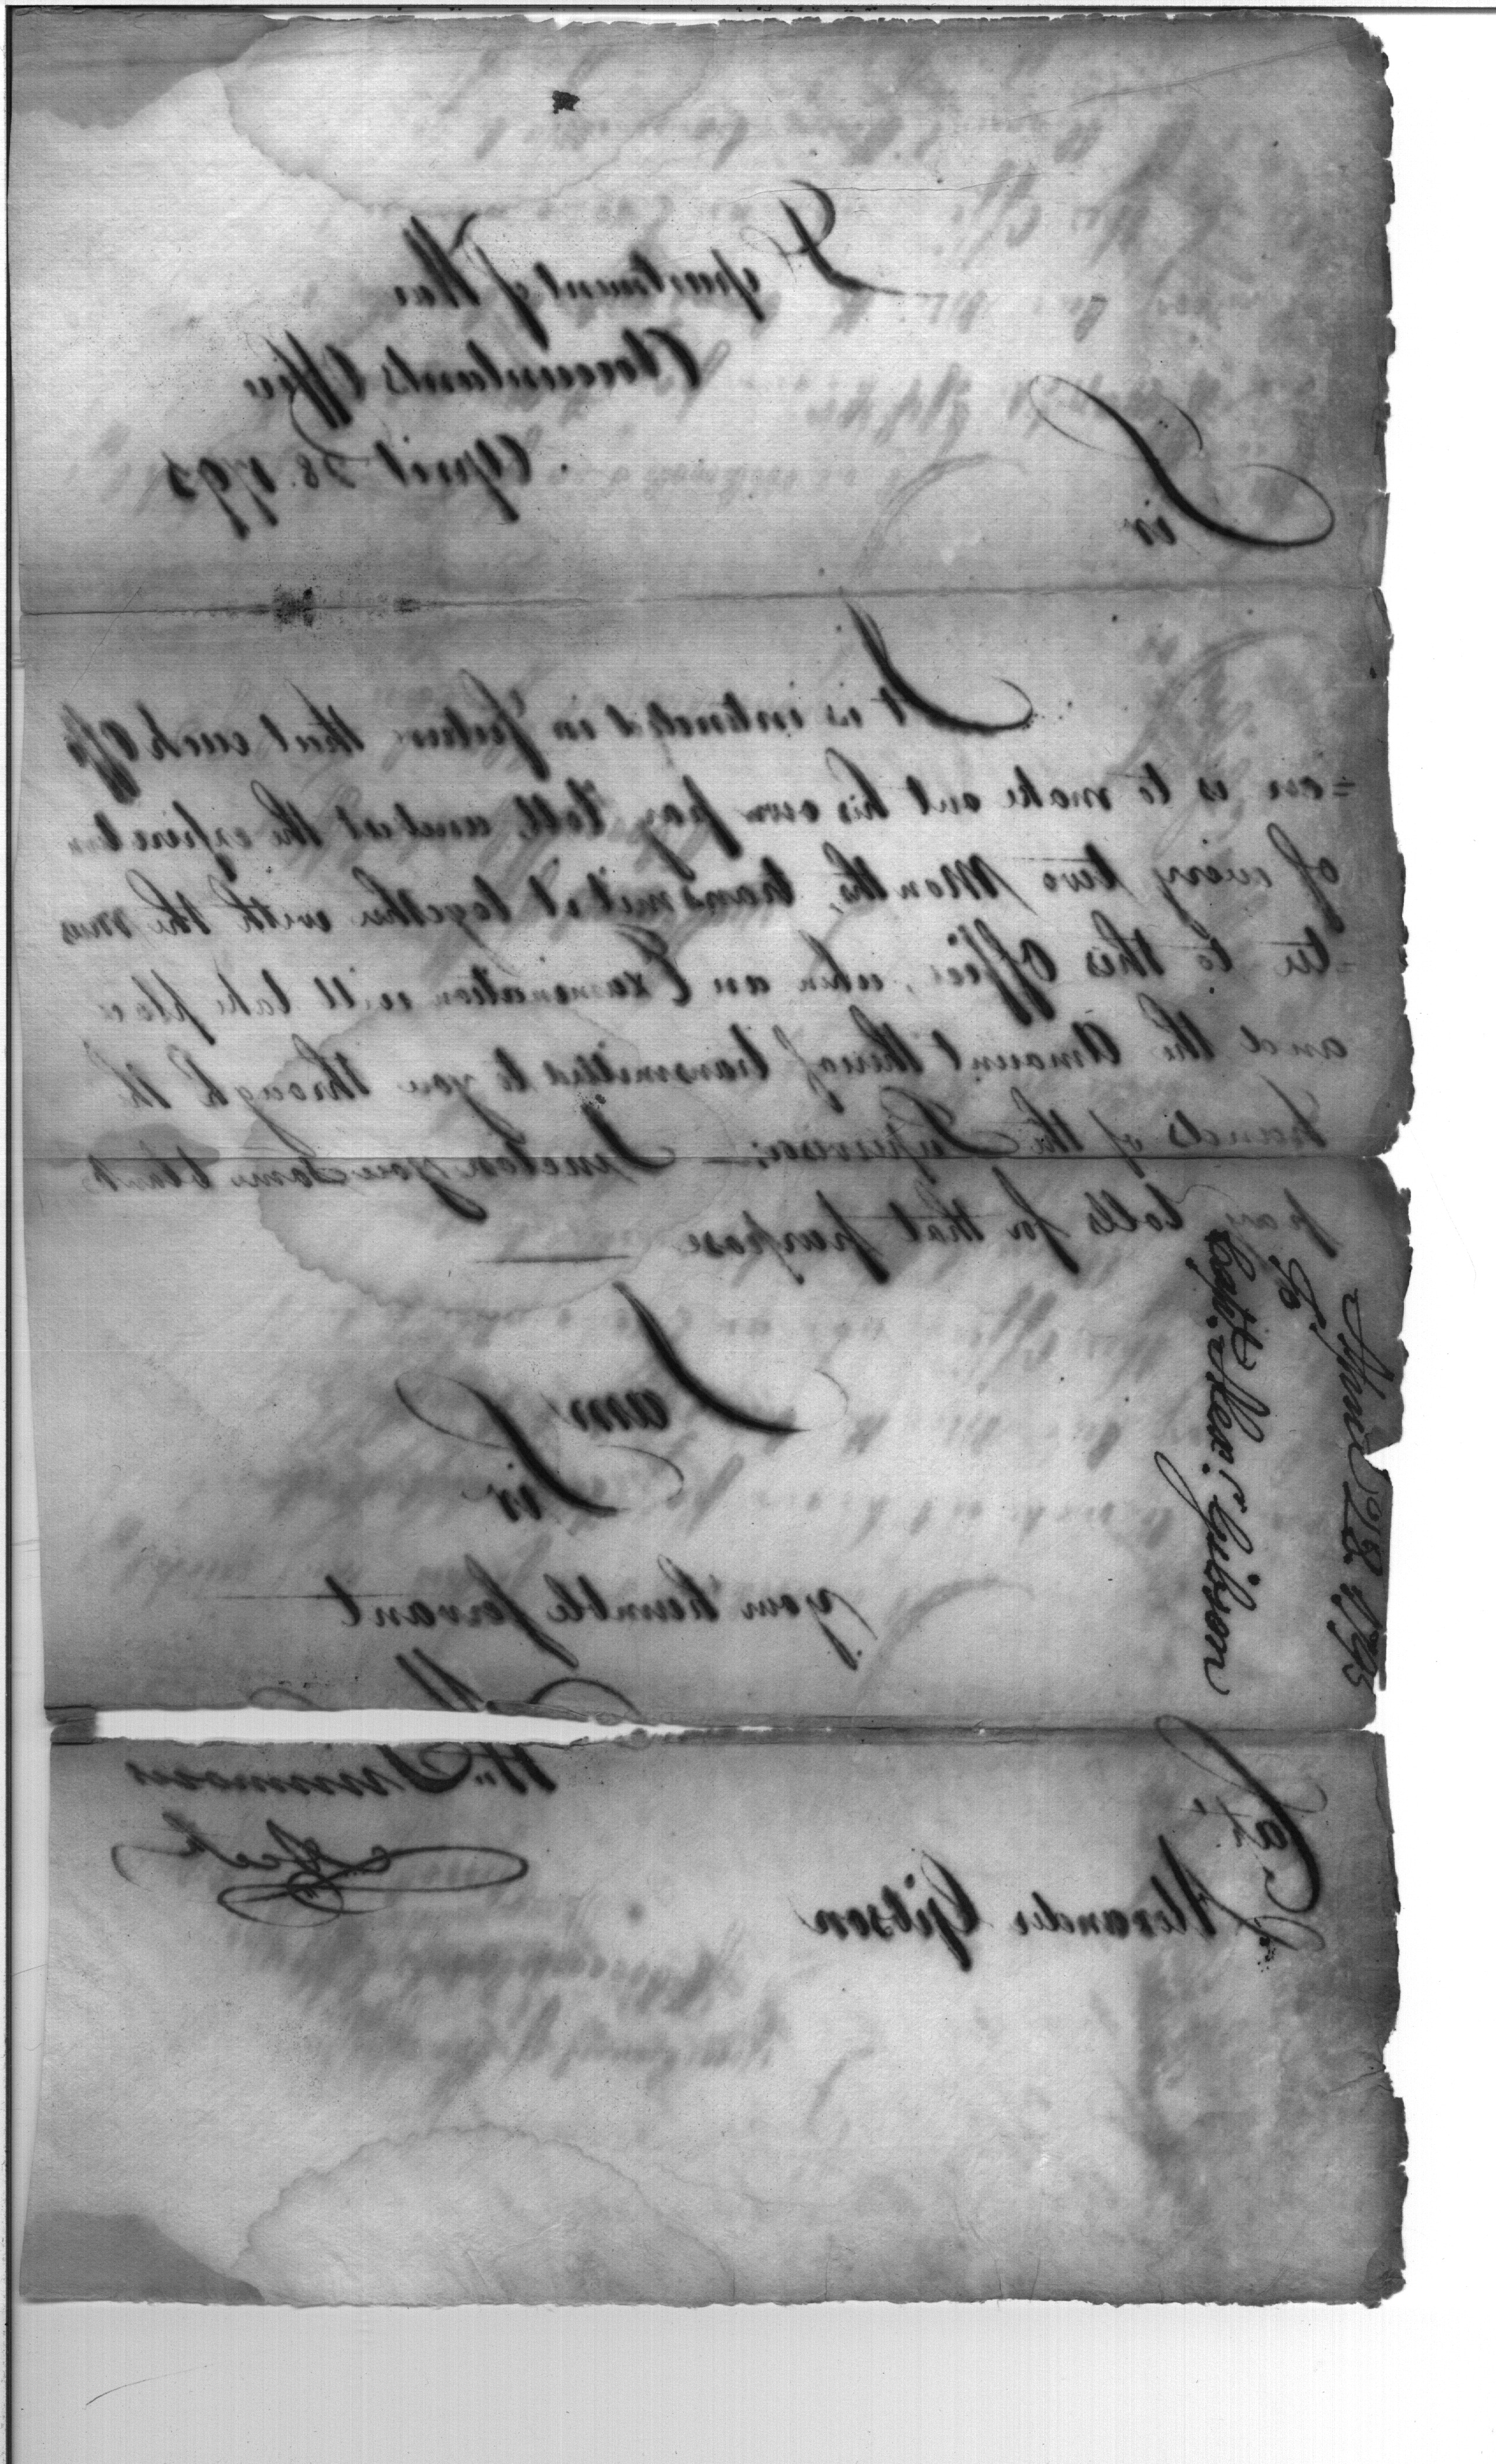 Department of War
Accountants Office
April 28. 1795
Sir
It is intended in future that each Offi
=cer is to make out his own pay roll, and at the expiration
of every two Months, transmit it together with the mus
=ter to this Office, when an Examination will take place
and the Amount thereof transmitted to you through the
hands of the Supervisor;— I enclose you some blank
pay rolls for that purpose
I am
Sir
your humble servant
Wm. Simmons
Capt.
Alexander Gibson
April 28 1795
To
Capt. Alex: Gibson